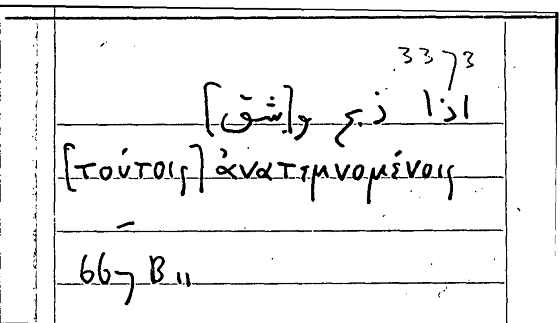 3373
اذا ذبح و[شق]
[τούτοις] ἀνατεμνομένοις
667 B 11